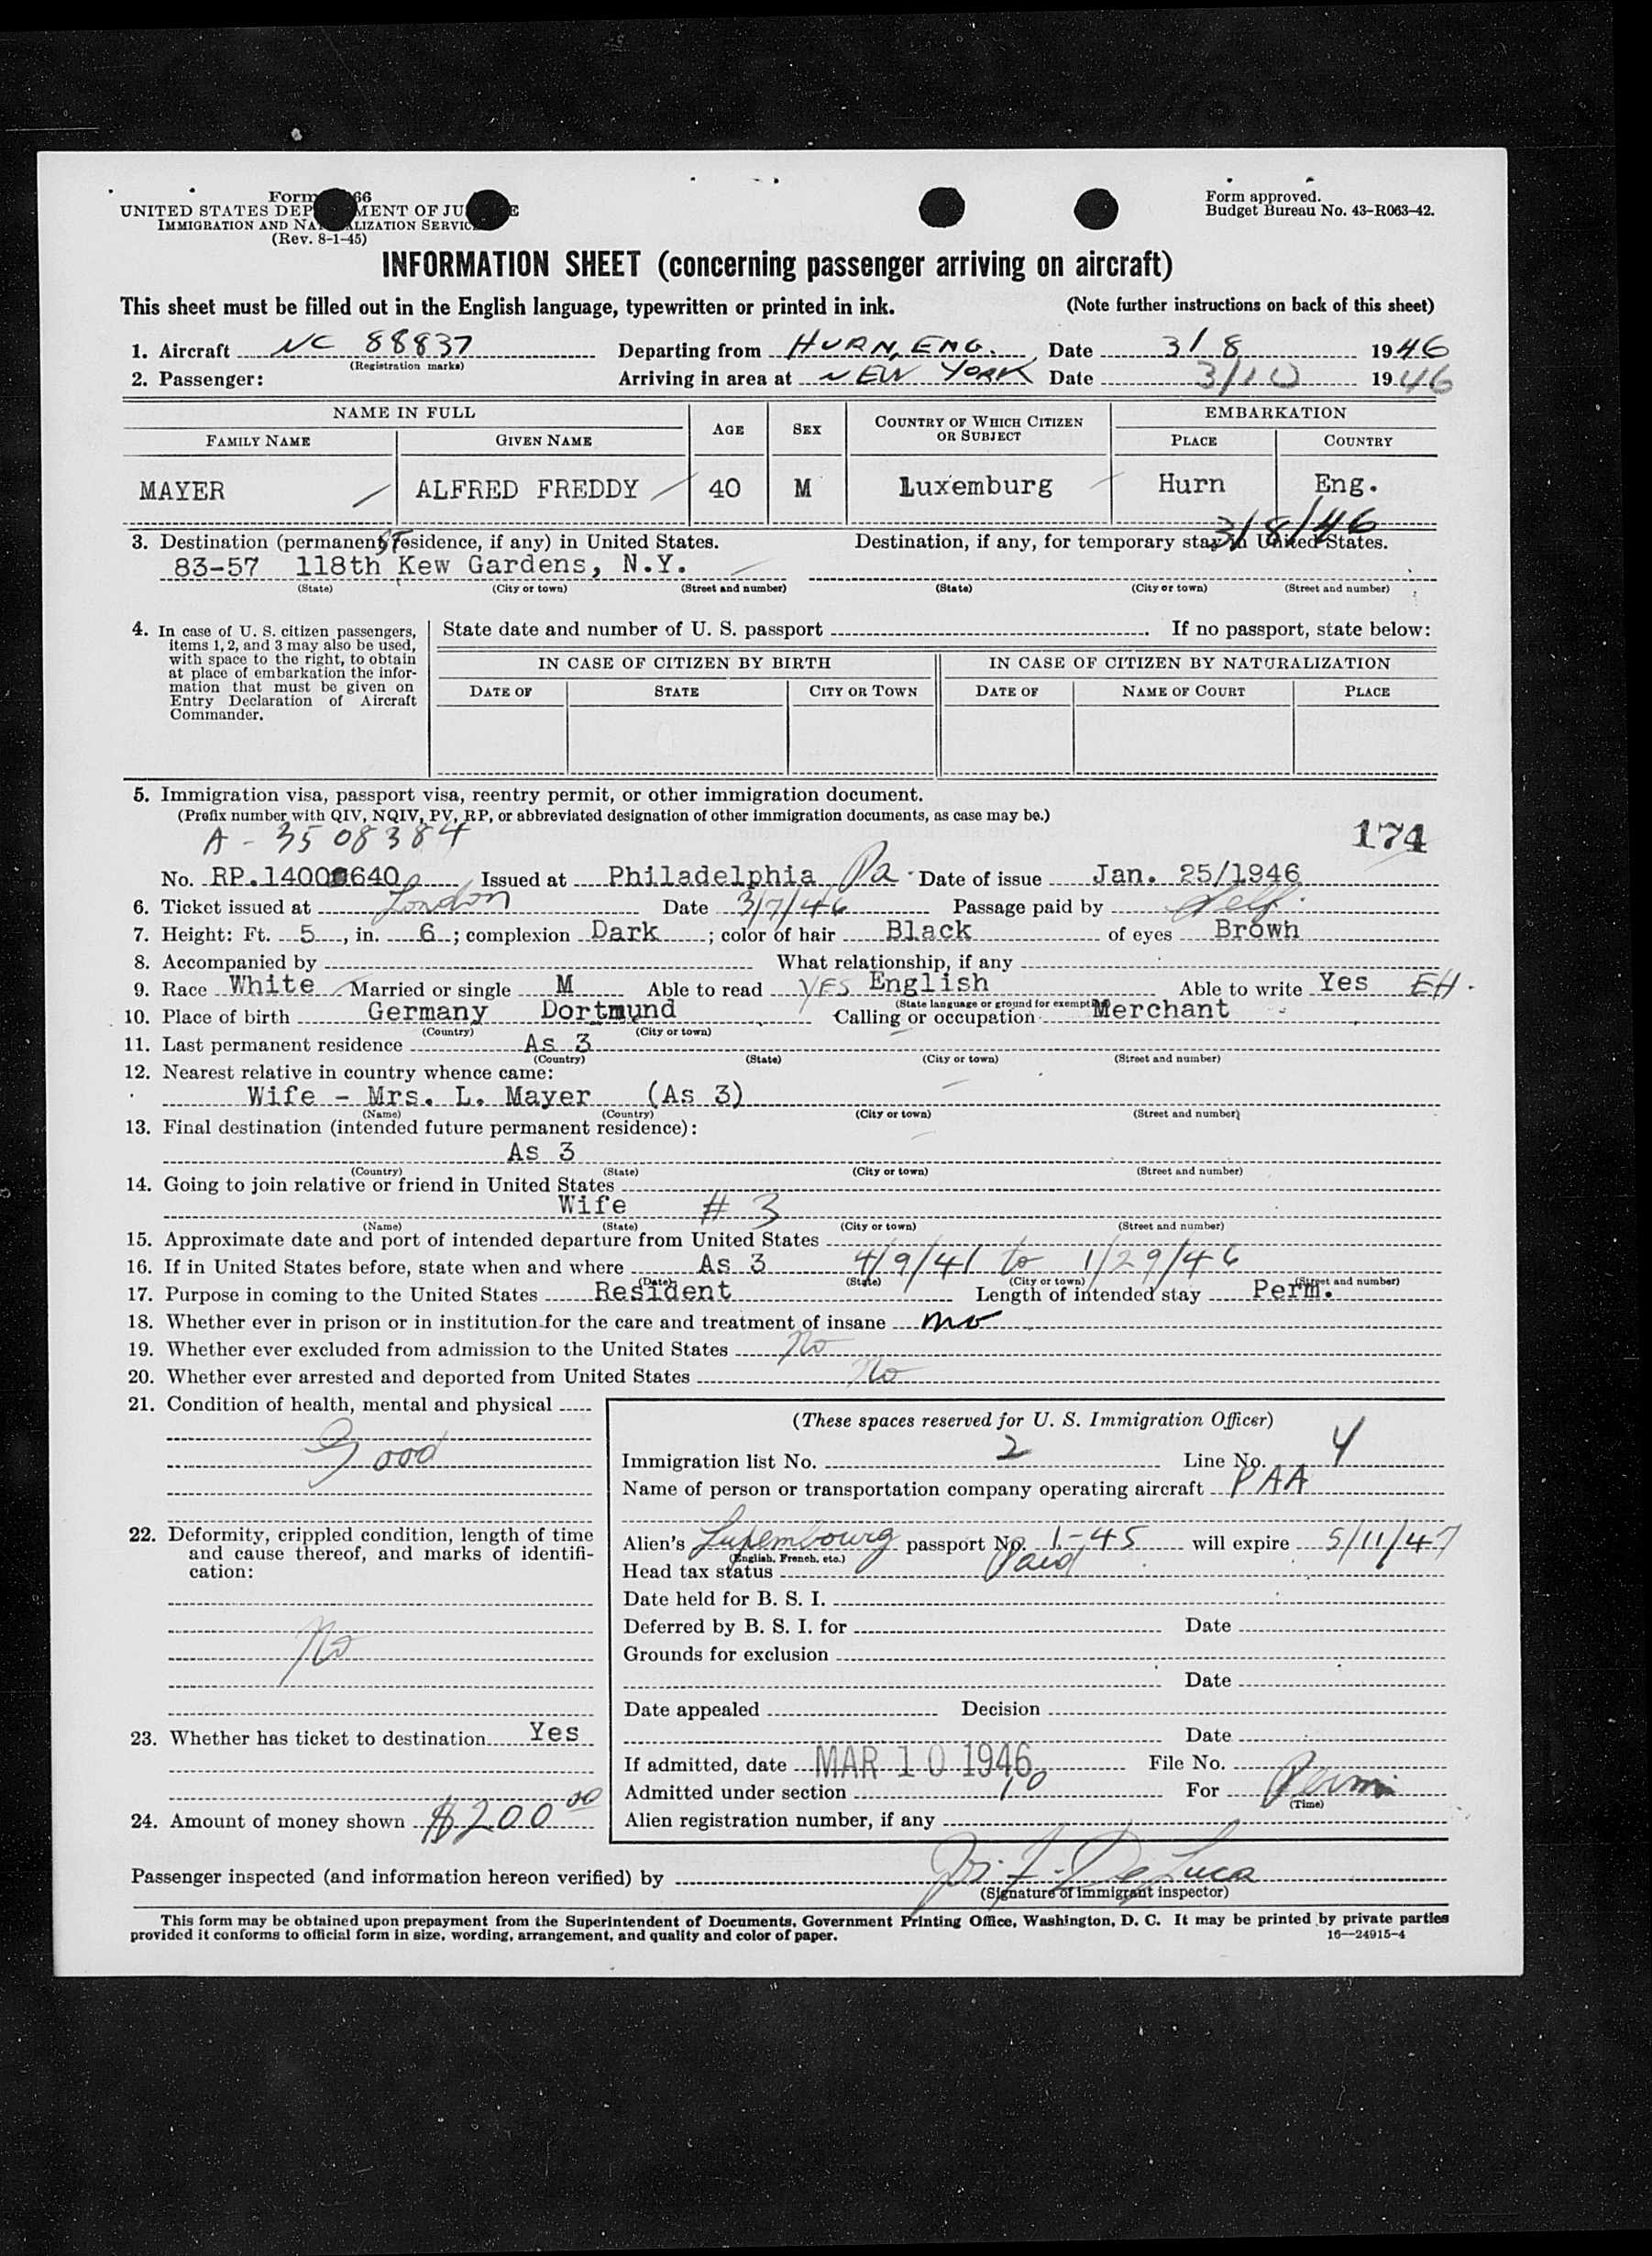 Form 66
UNITED STATES DEP MENT OF JU E
IMMIGRATION AND NA ALIZATION SERVIC
(Rev. 8-1-45)
Form approved.
Budget Bureau No. 43-R063-42.
INFORMATION SHEET (concerning passenger arriving on aircraft)
This sheet must be filled out in the English language, typewritten or printed in ink. (Note further instructions on back of this sheet)
1. Aircraft NC 88837 Departing from HURN, ENG. Date 3/8 1946
(Registration marks)
2. Passenger: Arriving in area at NEW YORK Date 3/10 1946
NAME IN FULL AGE SEX COUNTRY OF WHICH CITIZEN OR SUBJECT EMBARKATION
FAMILY NAME GIVEN NAME PLACE COUNTRY
MAYER ALFRED FREDDY 40 M Luxemburg Hurn Eng.
3/8/46
3. Destination (permanent residence, if any) in United States. Destination, if any, for temporary stay in United States.
83-57 118th ST Kew Gardens, N.Y.
(State) (City or town) (Street and number) (State) (City or town) (Street and number)
4. In case of U. S. citizen passengers, items 1, 2, and 3 may also be used, with space to the right, to obtain at place of embarkation the information that must be given on Entry Declaration of Aircraft Commander.
State date and number of U. S. passport If no passport, state below:
IN CASE OF CITIZEN BY BIRTH IN CASE OF CITIZEN BY NATURALIZATION
DATE OF STATE CITY OR TOWN DATE OF NAME OF COURT PLACE
5. Immigration visa, passport visa, reentry permit, or other immigration document.
(Prefix number with QIV, NQIV, PV, RP, or abbreviated designation of other immigration documents, as case may be.)
A - 3508384 174
No. RP.1400640 Issued at Philadelphia Pa. Date of issue Jan. 25/1946
6. Ticket issued at London Date 3/7/46 Passage paid by Self.
7. Height: Ft. 5, in. 6; complexion Dark; color of hair Black of eyes Brown
8. Accompanied by What relationship, if any
9. Race White Married or single M Able to read YES English Able to write Yes EH.
(State language or ground for exemption)
10. Place of birth Germany Dortmund Calling or occupation Merchant
(Country) (City or town)
11. Last permanent residence As 3
(Country) (State) (City or town) (Street and number)
12. Nearest relative in country whence came:
Wife - Mrs. L. Mayer (As 3)
(Name) (Country) (City or town) (Street and number)
13. Final destination (intended future permanent residence):
As 3
(Country) (State) (City or town) (Street and number)
14. Going to join relative or friend in United States
Wife # 3
(Name) (State) (City or town) (Street and number)
15. Approximate date and port of intended departure from United States
16. If in United States before, state when and where As 3 4/9/41 to 1/29/46
(Date) (State) (City or town) (Street and number)
17. Purpose in coming to the United States Resident Length of intended stay Perm.
18. Whether ever in prison or in institution for the care and treatment of insane no
19. Whether ever excluded from admission to the United States No
20. Whether ever arrested and deported from United States No
21. Condition of health, mental and physical
Good
22. Deformity, crippled condition, length of time and cause thereof, and marks of identification:
No
23. Whether has ticket to destination Yes
24. Amount of money shown $200 00
(These spaces reserved for U. S. Immigration Officer)
Immigration list No. 2 Line No. 4
Name of person or transportation company operating aircraft PAA
Alien's Luxembourg passport No. 1-45 will expire 5/11/47
(English, French, etc.)
Head tax status Paid
Date held for B. S. I.
Deferred by B. S. I. for Date
Grounds for exclusion
Date
Date appealed Decision
Date
If admitted, date MAR 10 1946 File No.
Admitted under section 10 For Perm
(Time)
Alien registration number, if any
Passenger inspected (and information hereon verified) by De Luca
(Signature of immigrant inspector)
This form may be obtained upon prepayment from the Superintendent of Documents, Government Printing Office, Washington, D. C. It may be printed by private parties
provided it conforms to official form in size, wording, arrangement, and quality and color of paper. 16—24915-4